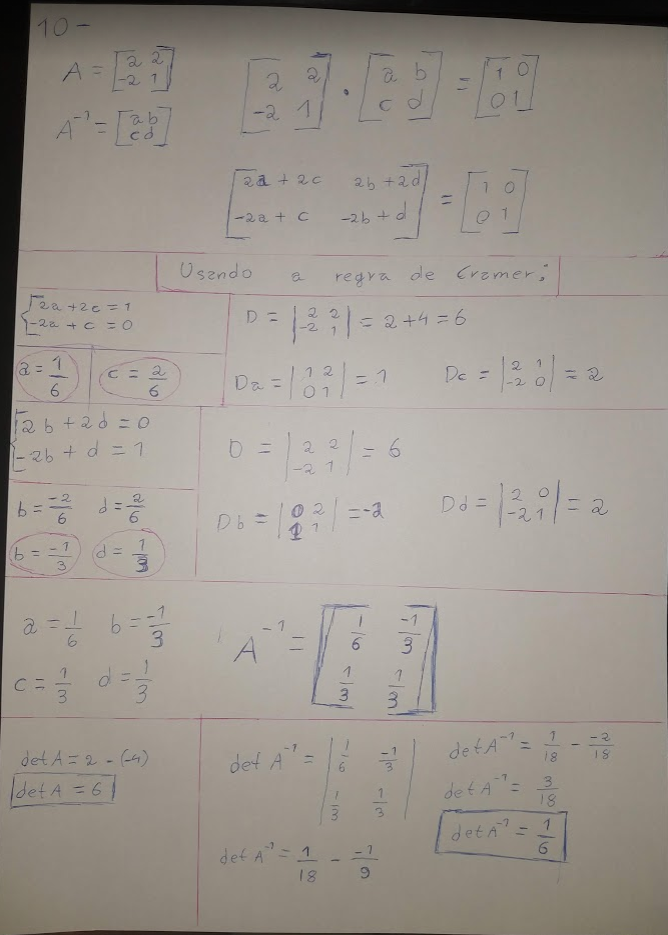 10-
A = [2 2
-2 1]
A⁻¹ = [a b
c d]
[2 2
-2 1] . [a b
c d] = [1 0
0 1]
[2a + 2c 2b + 2d
-2a + c -2b + d] = [1 0
0 1]
Usando a regra de Cramer:
{2a + 2c = 1
-2a + c = 0
a = 1/6
c = 2/6
D = |2 2
-2 1| = 2 + 4 = 6
Da = |1 2
0 1| = 1
Dc = |2 1
-2 0| = 2
{2b + 2d = 0
-2b + d = 1
b = -2/6 d = 2/6
b = -1/3 d = 1/3
D = |2 2
-2 1| = 6
Db = |0 2
1 1| = -2
Dd = |2 0
-2 1| = 2
a = 1/6 b = -1/3
c = 1/3 d = 1/3
A⁻¹ = [1/6 -1/3
1/3 1/3]
det A = 2 - (-4)
det A = 6
det A⁻¹ = |1/6 -1/3
1/3 1/3|
det A⁻¹ = 1/18 - -1/9
det A⁻¹ = 1/18 - -2/18
det A⁻¹ = 3/18
det A⁻¹ = 1/6